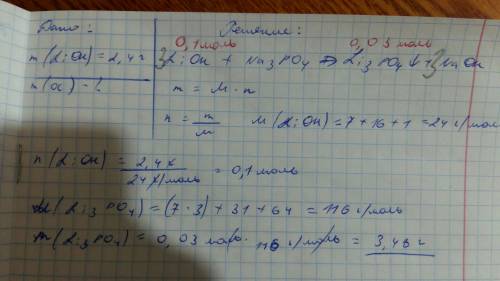 Дано:
m(Li OH) = 2,4 г
n(ос) - ?
Решение:
0,1 моль 0,03 моль
3 Li OH + Na₃PO₄ → Li₃PO₄↓ + 3 NaOH
m = M · n
n = m/M M(Li OH) = 7 + 16 + 1 = 24 г/моль
n(Li OH) = 2,4 г / 24 г/моль = 0,1 моль
M(Li₃PO₄) = (7 · 3) + 31 + 64 = 116 г/моль
m(Li₃PO₄) = 0,03 моль · 116 г/моль = 3,48 г